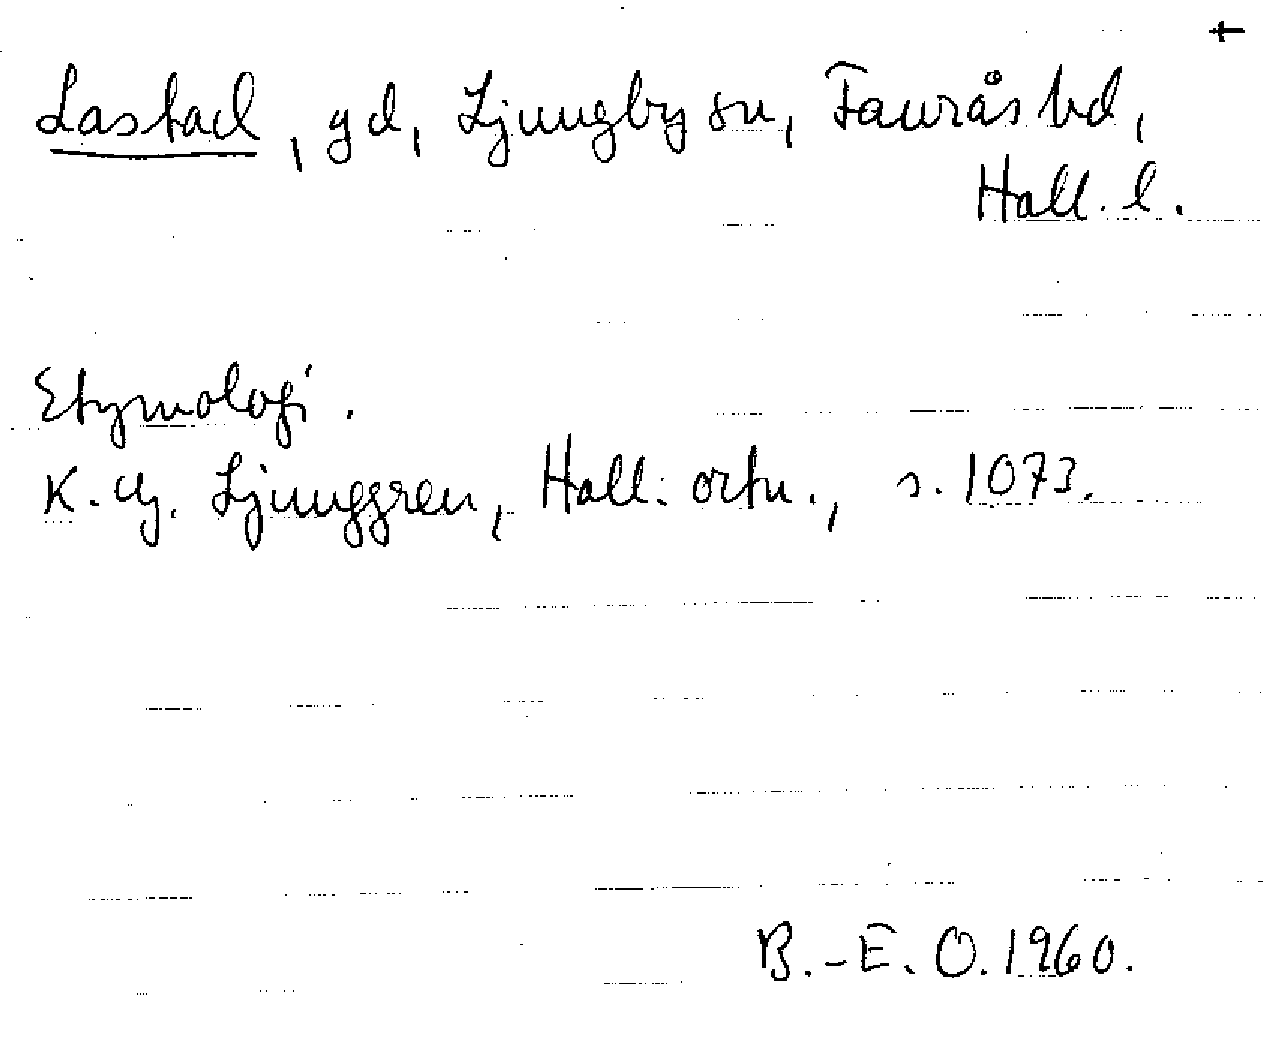 Lastad, gd, Ljungby sn, Faurås hd,
Hall. l.
Etymologi.
K. G. Ljunggren, Hall. ortn., s. 1073.
B.-E. O. 1960.